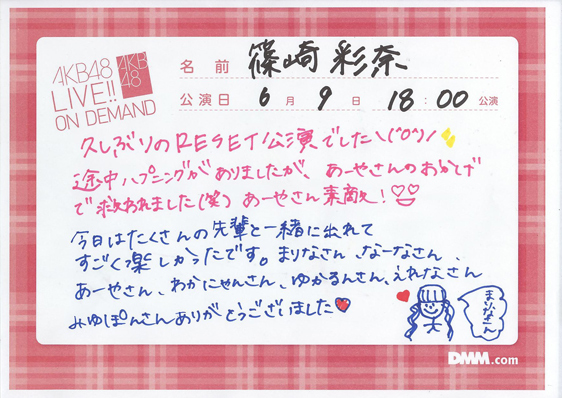 AKB48
LIVE!!
ON DEMAND
AKB
48
名前 篠崎 彩奈
公演日 6月9日 18:00公演
久しぶりのRESET公演でした\(^o^)/
途中ハプニングがありましたが、あーやさんのおかげ
で救われました(笑) あーやさん素敵!♡♡
今日はたくさんの先輩と一緒に出れて
すごく楽しかったです。まりなさん、なーなさん、
あーやさん、わかにゃんさん、ゆかるんさん、えれなさん
みゆぽんさんありがとうございました♥
まりなさん
DMM.com